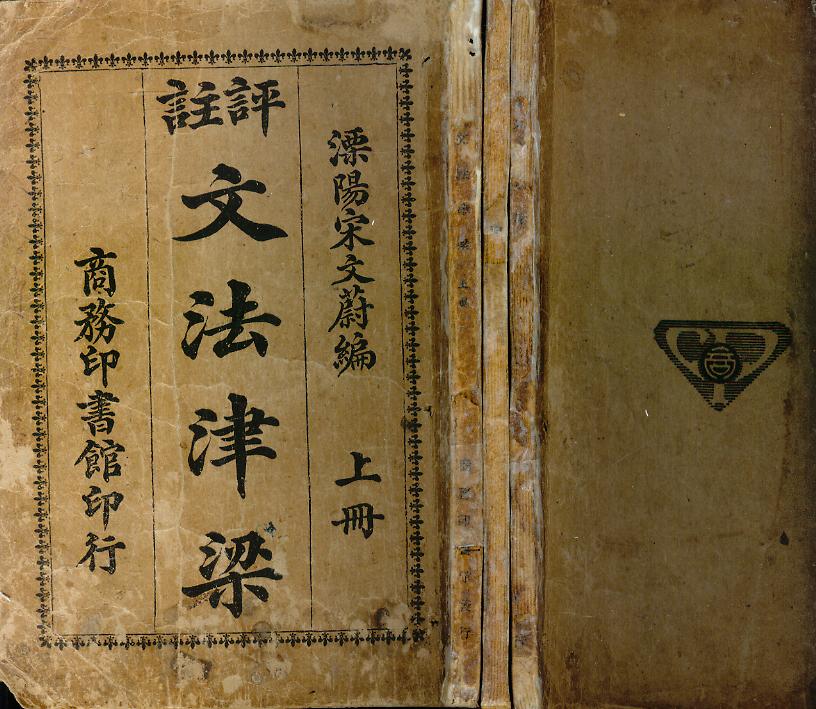 溧陽宋文蔚編 上冊
評註
文法津梁
商務印書館印行